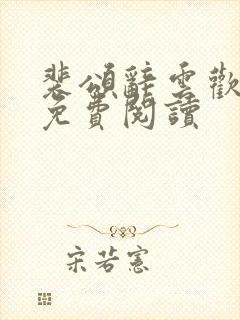 裴頌辭雲歡
免費閱讀
宋若憲